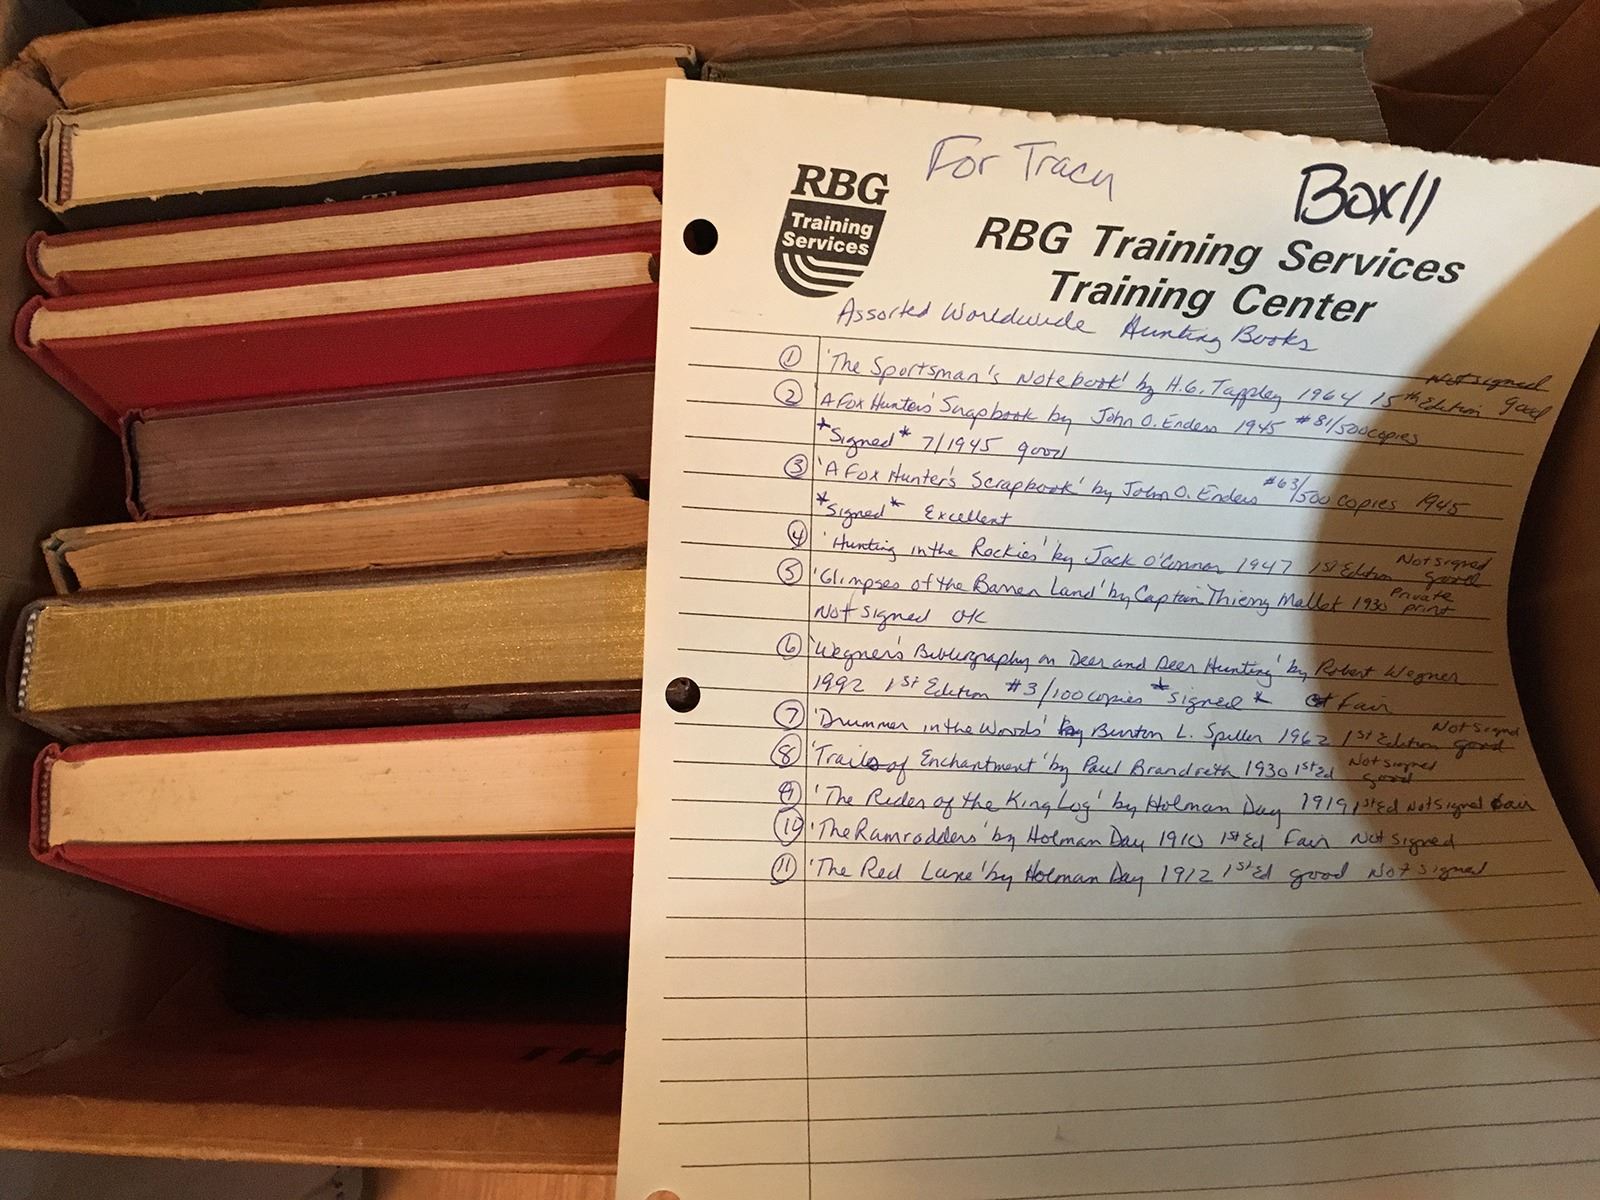 For Tracy
Box 11
RBG
Training
Services
RBG Training Services
Training Center
Assorted Worldwide Hunting Books
① 'The Sportsman's Notebook' by H.G. Tappley 1964 15th Edition Not signed good
② 'A Fox Hunters' Scrapbook by John O. Enders 1945 #81/500 copies
*Signed* 7/1945 good
③ 'A Fox Hunter's Scrapbook' by John O. Enders #63/500 copies 1945
*Signed* Excellent
④ 'Hunting in the Rockies' by Jack O'Connor 1947 1st Edition Not Signed good
⑤ 'Glimpses of the Barren Land' by Captain Thierry Mallet 1930 Private print
Not signed OK
⑥ 'Wegner's Bibliography on Deer and Deer Hunting' by Robert Wegner
1992 1st Edition #3/100 copies *signed* Fair
⑦ 'Drummer in the Woods' by Burton L. Spiller 1962 1st Edition Not Signed good
⑧ 'Trails of Enchantment' by Paul Brandreth 1930 1st Ed Not signed good
⑨ 'The Rider of the King Log' by Holman Day 1919 1st Ed Not Signed fair
⑩ 'The Ramrodders' by Holman Day 1910 1st Ed Fair Not Signed
⑪ 'The Red Lane' by Holman Day 1912 1st Ed good Not signed
TH